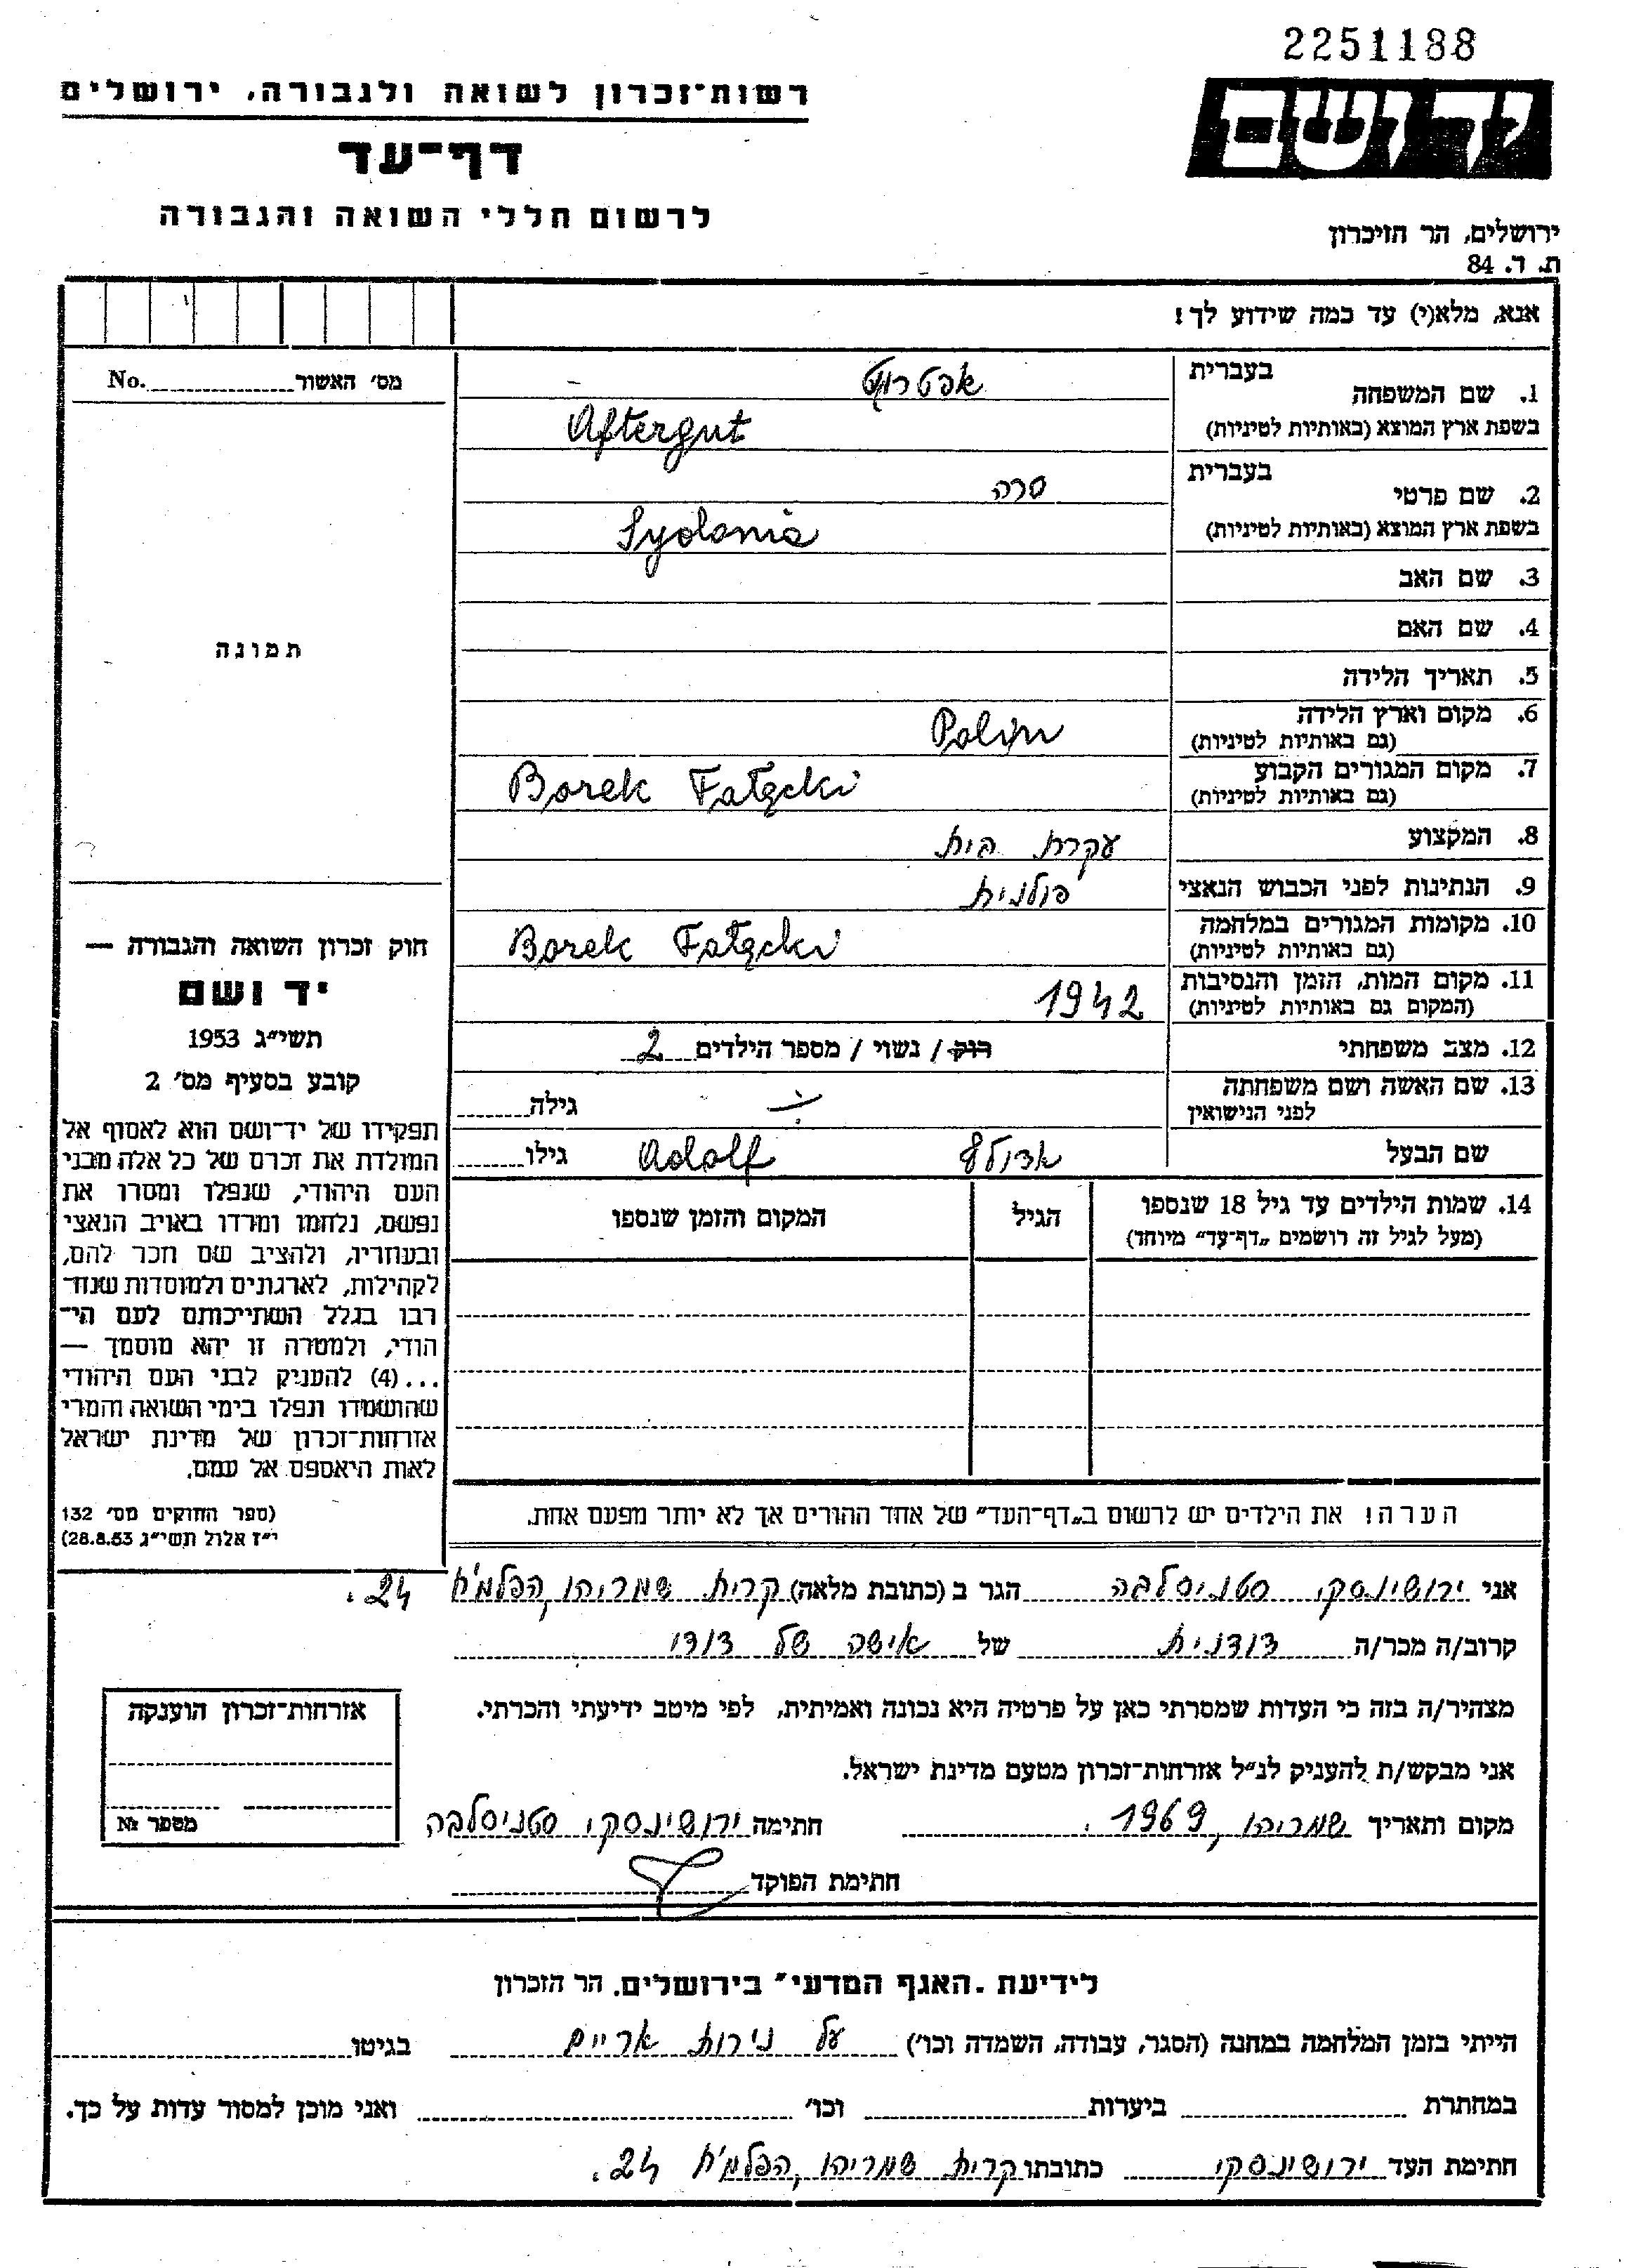 2251188
יד ושם
רשות־זכרון לשואה ולגבורה, ירושלים
דף־עד
לרשום חללי השואה והגבורה
ירושלים, הר הזיכרון
ת. ד. 84
אנא, מלא(י) עד כמה שידוע לך!
1. שם המשפחה
בעברית אפטרגוט
בשפת ארץ המוצא (באותיות לטיניות) Aftergut
2. שם פרטי
בעברית שרה
בשפת ארץ המוצא (באותיות לטיניות) Sydonia
3. שם האב
4. שם האם
5. תאריך הלידה
6. מקום וארץ הלידה
(גם באותיות לטיניות) Polin
7. מקום המגורים הקבוע
(גם באותיות לטיניות) Borek Fałęcki
8. המקצוע עקרת בית
9. הנתינות לפני הכבוש הנאצי פולנית
10. מקומות המגורים במלחמה
(גם באותיות לטיניות) Borek Fałęcki
11. מקום המות, הזמן והנסיבות
(המקום גם באותיות לטיניות) 1942
12. מצב משפחתי רוק / נשוי / מספר הילדים 2
13. שם האשה ושם משפחתה
לפני הנישואין
גילה
שם הבעל אדולף Adolf גילו
14. שמות הילדים עד גיל 18 שנספו
(מעל לגיל זה רושמים „דף־עד״ מיוחד)
הגיל
המקום והזמן שנספו
הערה! את הילדים יש לרשום ב„דף־העד״ של אחד ההורים אך לא יותר מפעם אחת.
מס׳ האשור No.
תמונה
חוק זכרון השואה והגבורה —
יד ושם
תשי״ג 1953
קובע בסעיף מס׳ 2
תפקידו של יד־ושם הוא לאסוף אל
המולדת את זכרם של כל אלה מבני
העם היהודי, שנפלו ומסרו את
נפשם, נלחמו ומרדו באויב הנאצי
ובעוזריו, ולהציב שם וזכר להם,
לקהילות, לארגונים ולמוסדות שנח־
רבו בגלל השתייכותם לעם הי־
הודי, ולמטרה זו יהא מוסמך —
...(4) להעניק לבני העם היהודי
שהושמדו ונפלו בימי השואה והמרי
אזרחות־זכרון של מדינת ישראל
לאות היאספם אל עמם.
(ספר החוקים מס׳ 132
י״ז אלול תשי״ג 28.8.53)
אני ירושינסקי סטניסלבה הגר ב (כתובת מלאה) קרית שמריהו, הפלמ״ח 24.
קרוב/ה מכר/ה דודנית של אישה של דודי
מצהיר/ה בזה כי העדות שמסרתי כאן על פרטיה היא נכונה ואמיתית, לפי מיטב ידיעתי והכרתי.
אני מבקש/ת להעניק לנ״ל אזרחות־זכרון מטעם מדינת ישראל.
מקום ותאריך שמריהו, 1969. חתימה ירושינסקי סטניסלבה
חתימת הפוקד
אזרחות־זכרון הוענקה
מספר №
לידיעת „האגף המדעי״ בירושלים, הר הזכרון
הייתי בזמן המלחמה במחנה (הסגר, עבודה, השמדה וכו׳) על נירות אריים בגיטו
במחתרת ביערות וכו׳ ואני מוכן למסור עדות על כך.
חתימת העד ירושינסקי כתובתו קרית שמריהו, הפלמ״ח 24.